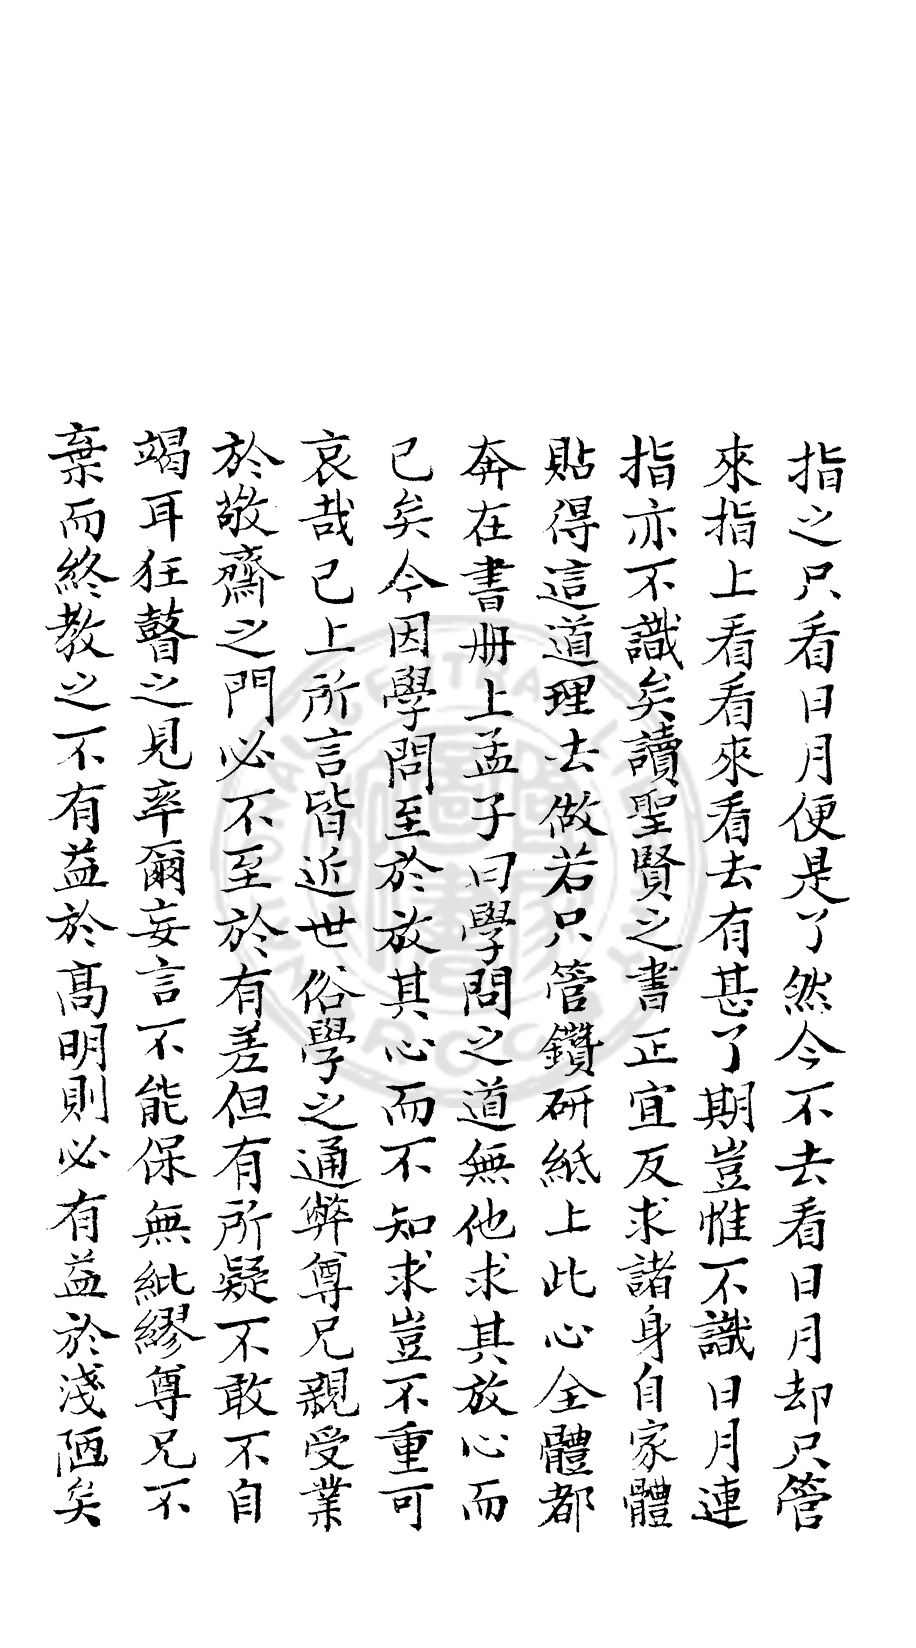 指之只看日月便是了然今不去看日月却只管
來指上看看來看去有甚了期豈惟不識日月連
指亦不識矣讀聖賢之書正宜反求諸身自家體
貼得這道理去做若只管鑽研紙上此心全體都
奔在書册上孟子曰學問之道無他求其放心而
已矣今因學問至於放其心而不知求豈不重可
哀哉已上所言皆近世俗學之通弊尊兄親受業
於敬齋之門必不至於有差但有所疑不敢不自
竭耳狂瞽之見率爾妄言不能保無紕繆尊兄不
棄而終教之不有益於髙明則必有益於淺陋矣